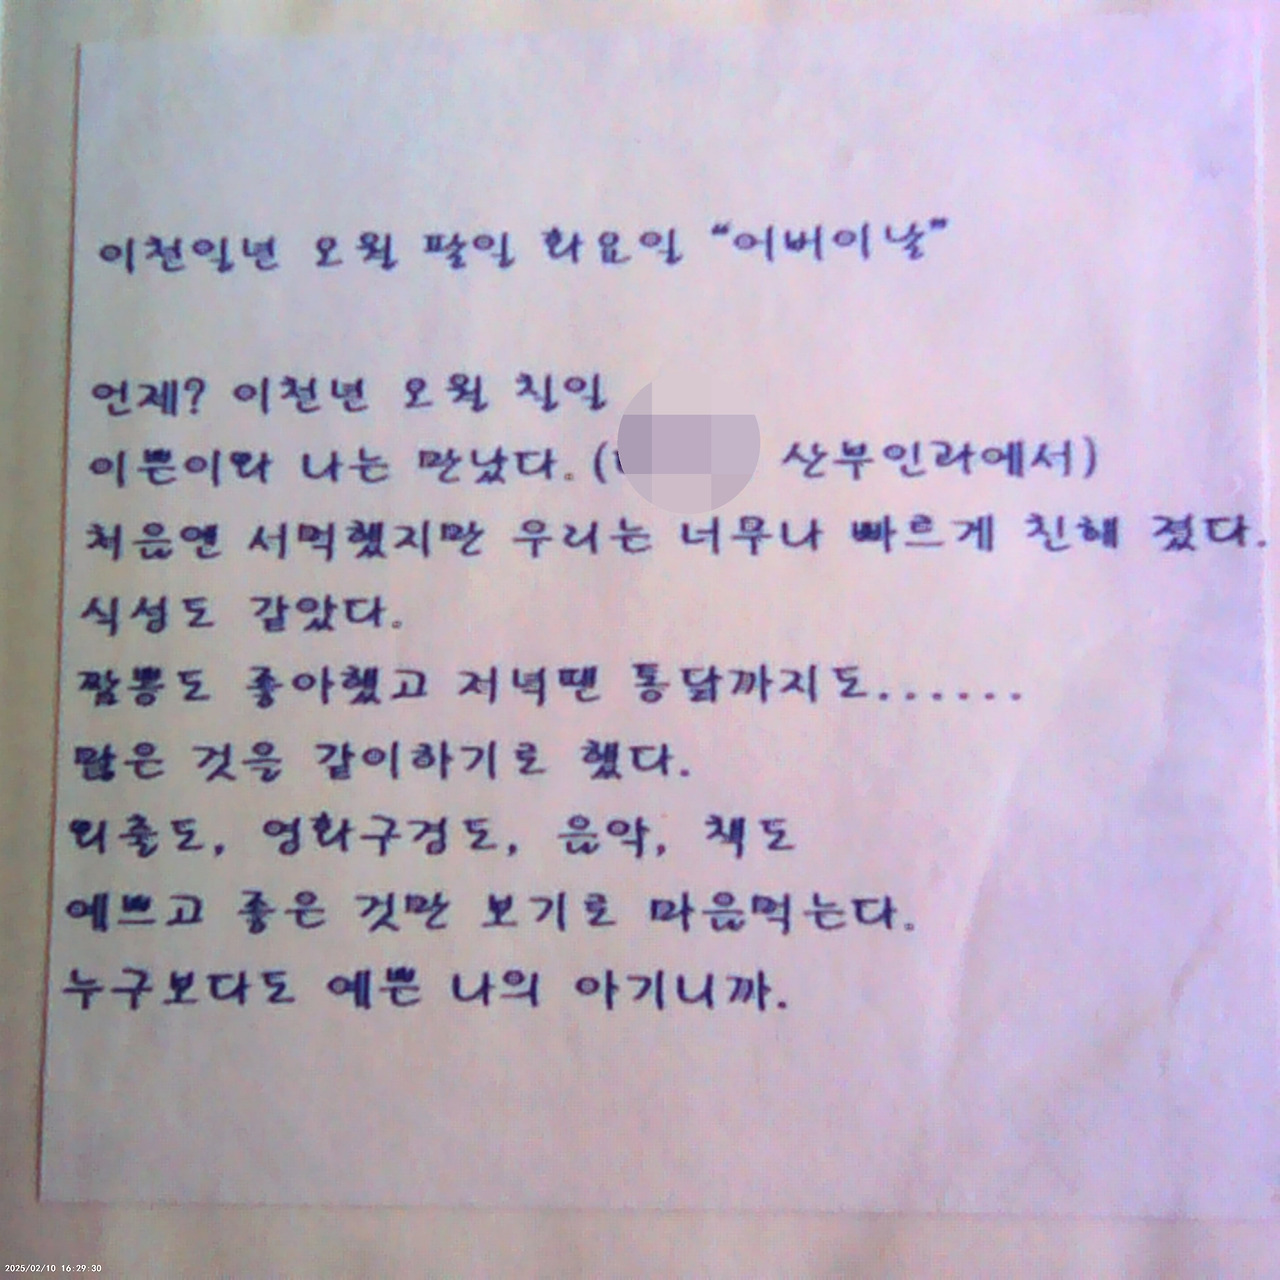 이천일년 오월 팔일 화요일 “어버이날”
언제? 이천년 오월 칠일
이쁜이와 나는 만났다. ( 산부인과에서)
처음엔 서먹했지만 우리는 너무나 빠르게 친해 졌다.
식성도 같았다.
짬뽕도 좋아했고 저녁땐 통닭까지도......
많은 것을 같이하기로 했다.
외출도, 영화구경도, 음악, 책도
예쁘고 좋은 것만 보기로 마음먹는다.
누구보다도 예쁜 나의 아기니까.
2025/02/10 16:29:30